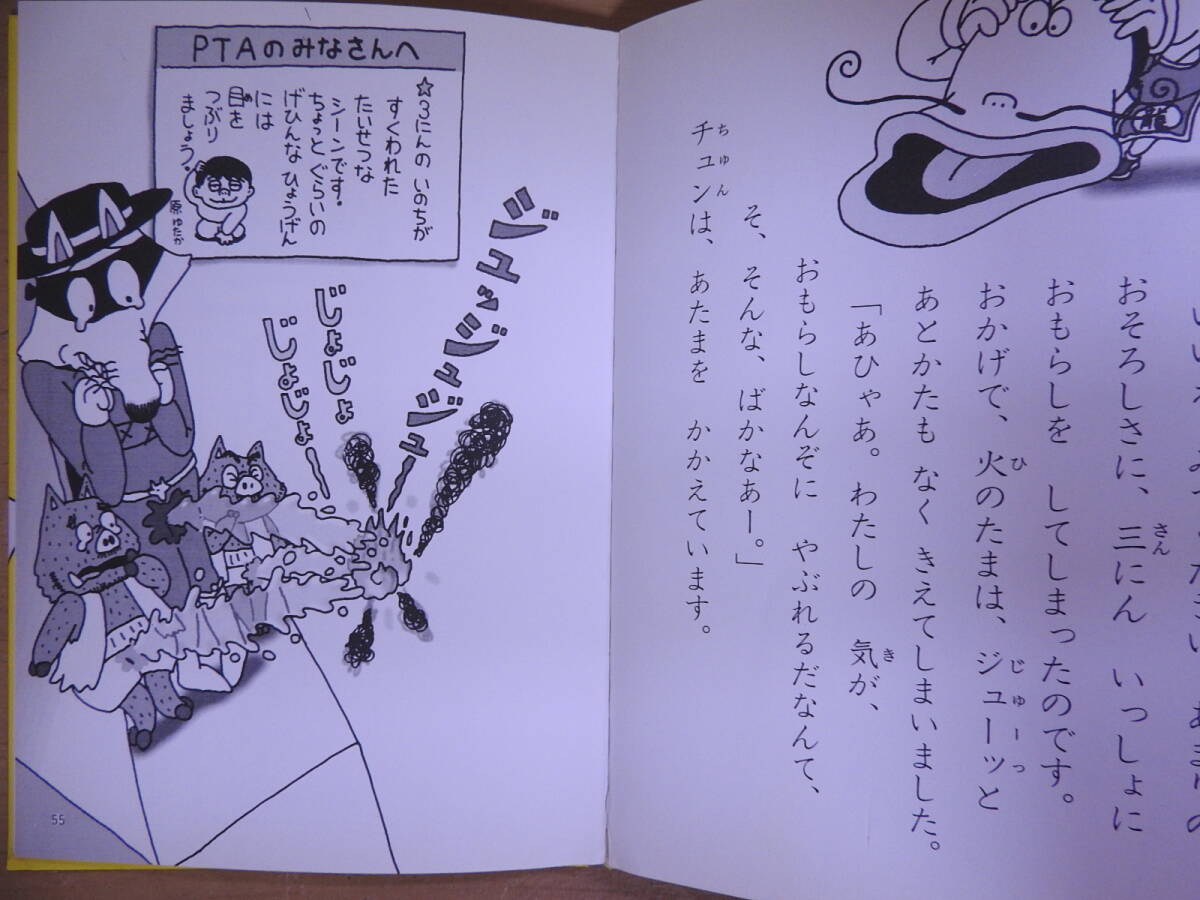 おそろしさに、三にん いっしょに
さん
おもらしを してしまったのです。
おかげで、火のたまは、ジューッと
ひ
じゅーっ
あとかたも なく きえてしまいました。
「あひゃあ。わたしの 気が、
き
おもらしなんぞに やぶれるだなんて、
そ、そんな、ばかなあー。」
チュンは、あたまを かかえています。
ちゅん
龍
PTAのみなさんへ
☆3にんの いのちが
すくわれた
たいせつな
シーンです。
ちょっとぐらいの
げひんな ひょうげん
には
目を
め
つぶり
ましょう。
原ゆたか
ジュッジュジュ
じょじょ
じょじょー
55